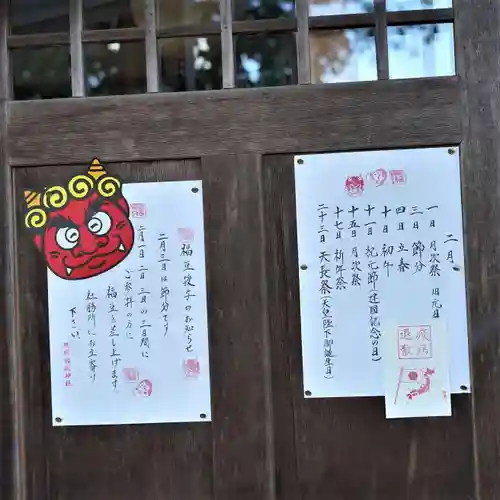 二月
一日 月次祭 旧元旦
三日 節分
四日 立春
十日 初午
十一日 紀元節(建国記念の日)
十五日 月次祭
十七日 祈年祭
二十三日 天長祭(天皇陛下御誕生日)
疫病
退散
福豆授与のお知らせ
二月三日は節分です。
二月一日 二日 三日の三日間に
ご参拝の方に
福豆を差し上げます。
社務所にお立寄り
下さい。